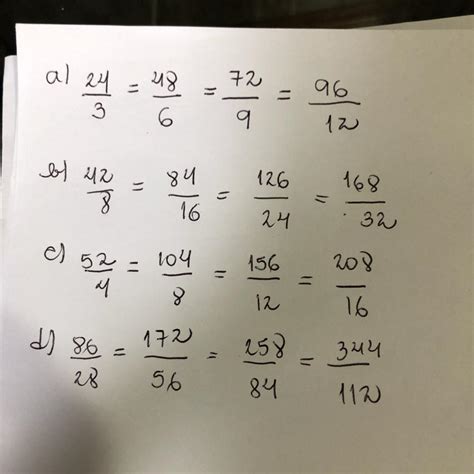 a) 24/3 = 48/6 = 72/9 = 96/12
b) 42/8 = 84/16 = 126/24 = 168/32
c) 52/4 = 104/8 = 156/12 = 208/16
d) 86/28 = 172/56 = 258/84 = 344/112